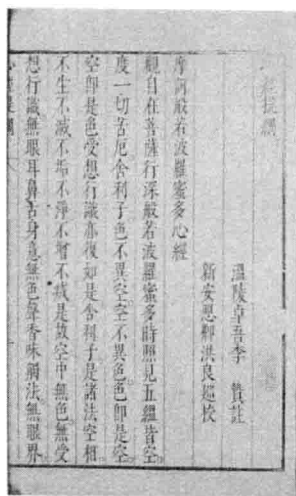 心經提綱
溫陵卓吾李　贄註
新安思釋洪良𨓏校
摩訶般若波羅蜜多心經
觀自在菩薩行深般若波羅蜜多時照見五蘊皆空。
度一切苦厄。舍利子色不異空。空不異色。色即是空。
空即是色。受想行識亦復如是。舍利子。是諸法空相。
不生不滅不垢不淨不增不減。是故空中無色。無受
想行識。無眼耳鼻舌身意。無色聲香味觸法。無眼界。